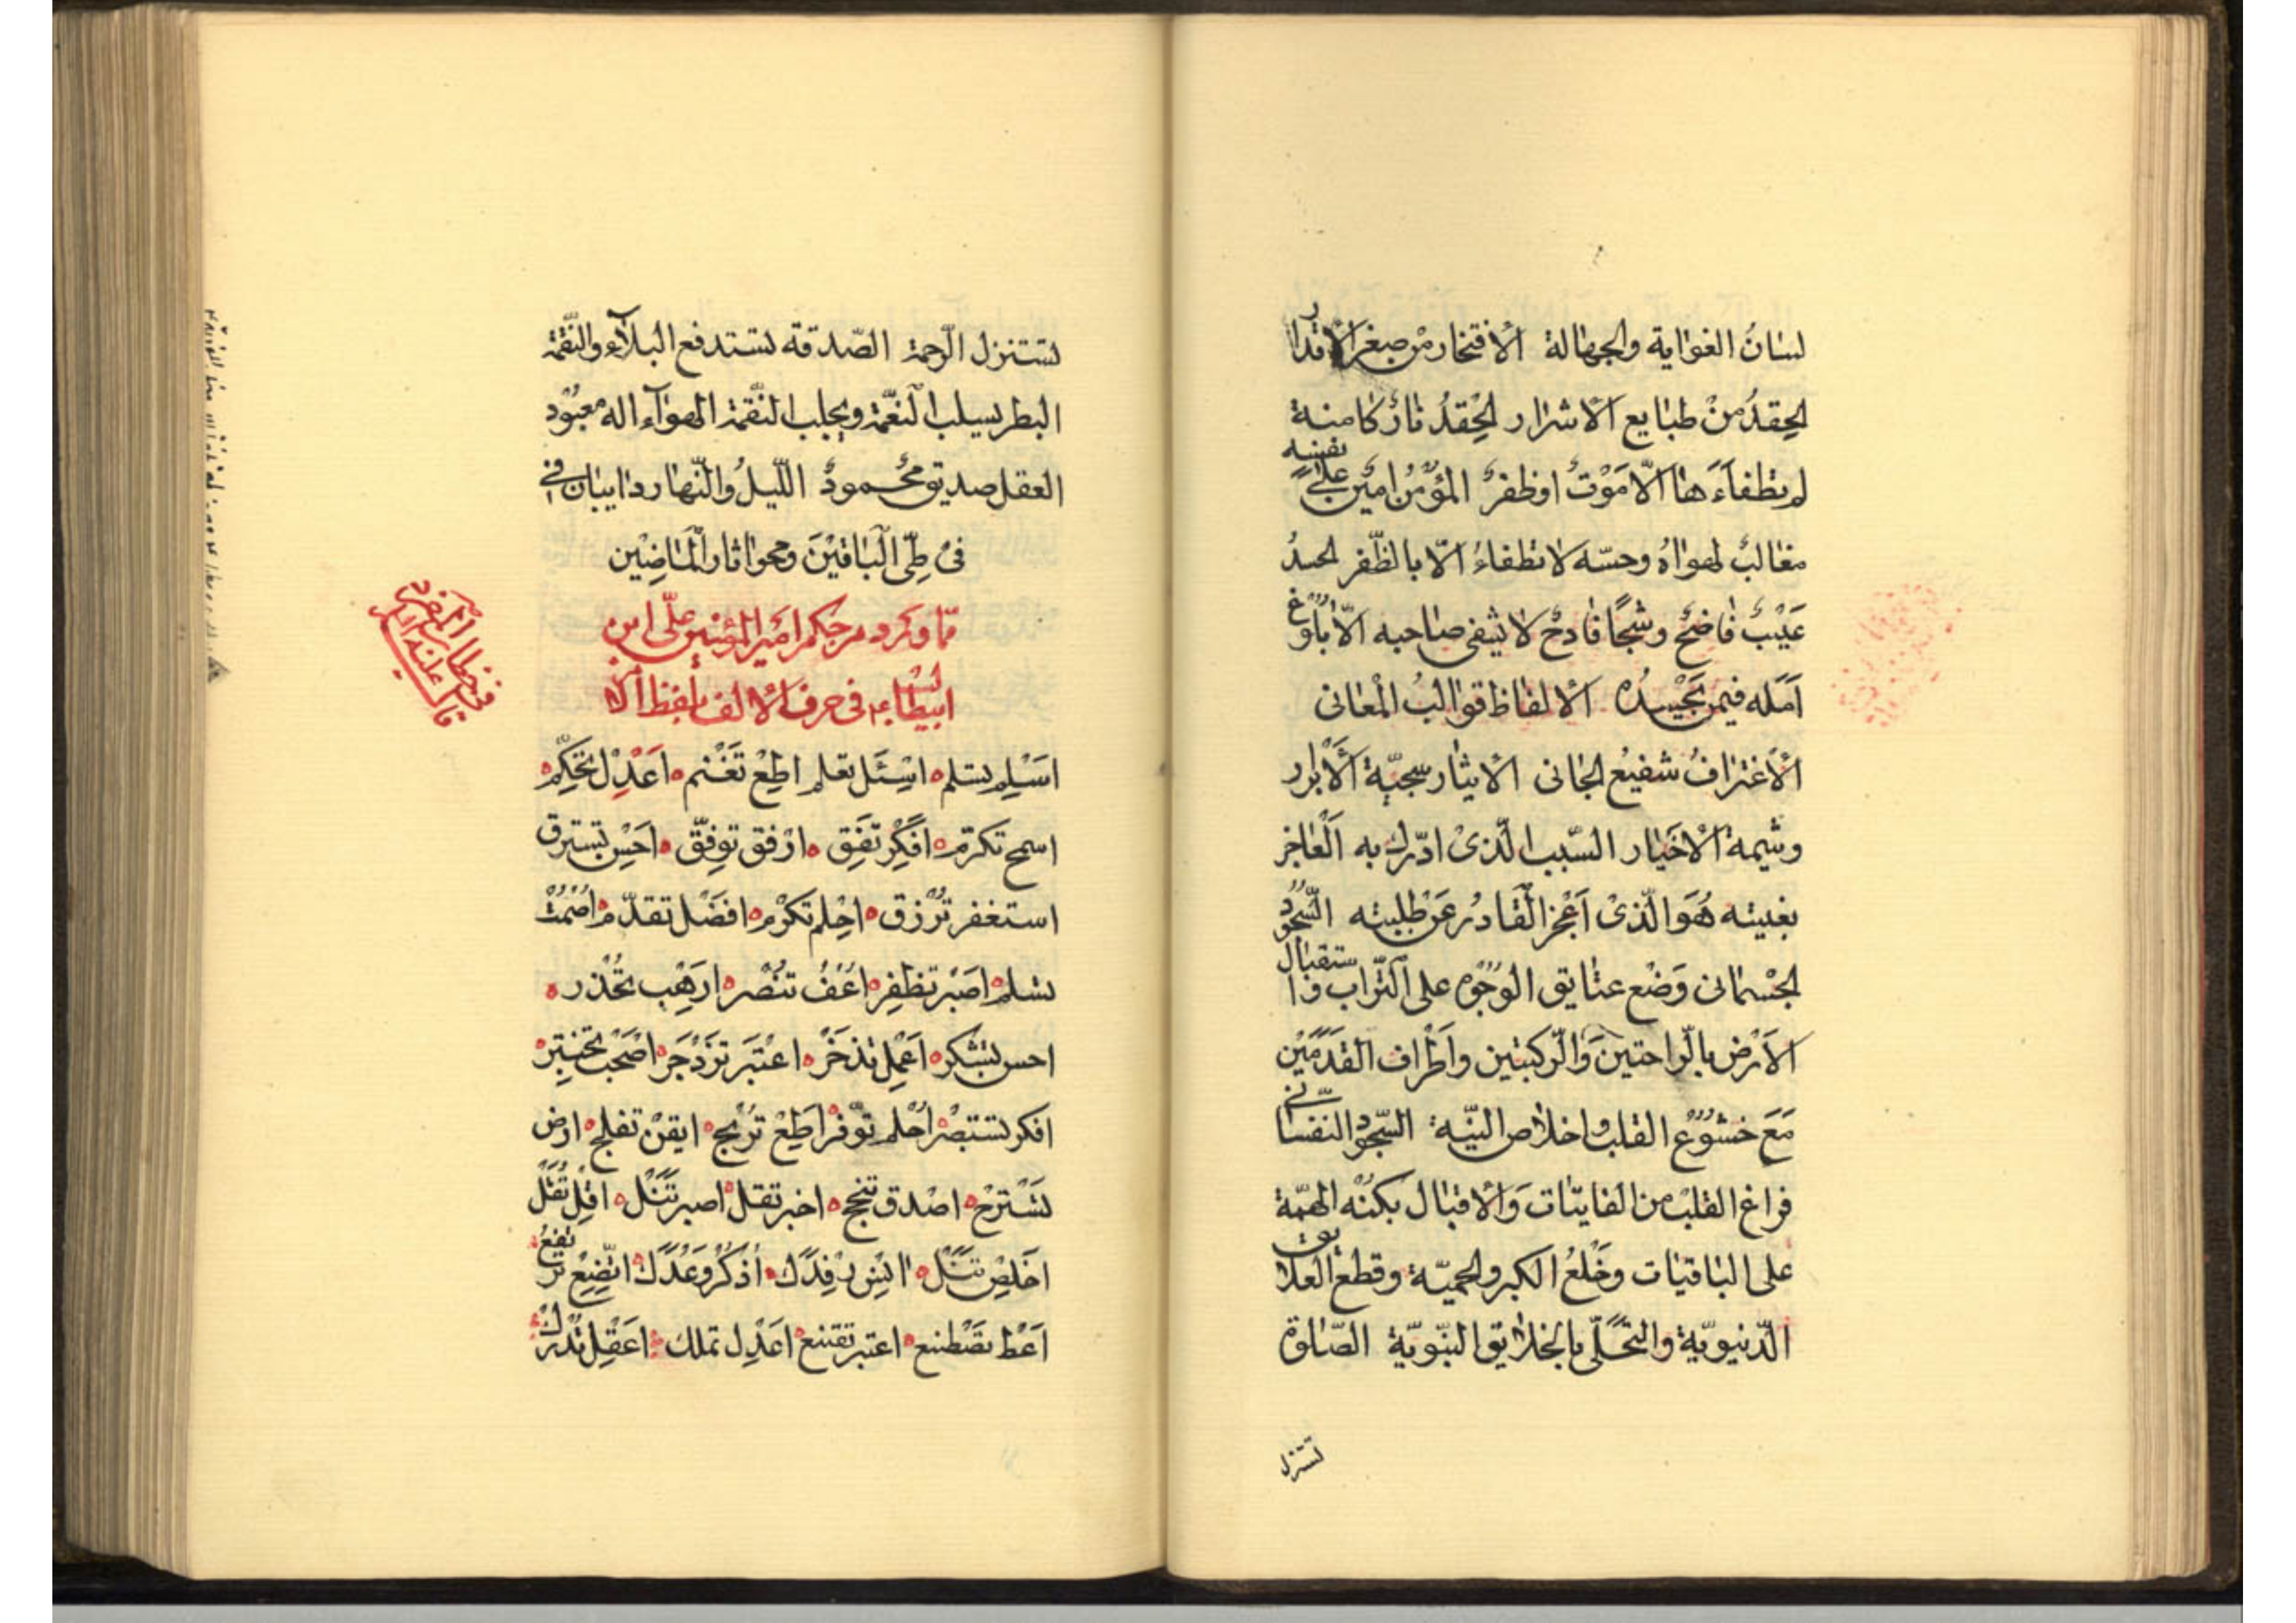 لسانُ الغوایة والجهالة الافتخار من صغر الاقدار
الحِقدُ من طبایع الاشرار الحِقدُ نارٌ کامنة
لم یطفاءها الّا مَوْتٌ او ظفرٌ المؤمن امینٌ علی نفسه
مغالبٌ لهواهُ وحسّه لا تطفاءُ الّا بالظّفر الحسدُ
عَیْبٌ فاضحٌ وشجًا فادحٌ لا یشفی صاحبه الّا بلوغ
آمَله فیمن یَحْسِدُه الالفاظ قوالبُ المعانی
الاعترافُ شفیعُ الجانی الایثار سجیّة الابرار
وشیمة الاخیار السّبب الّذی ادّرك به العٰاجز
بغیته هُوَ الّذی اَعْجز القادرُ عَن طلبته السّجود
الجسمانی وَضْع عتایق الوُجُوه علی التّراب واستقبال
الاَرْض بالرّاحتین وَالرّکبتین واَطراف القدَمَیْن
مَعَ خشُوُع القلب واخلاص النیّة السّجود النفسانی
فراغ القلب من الفایتات وَالاقبال بکُنْه الهمّة
علی الباقیات وخَلْعُ الکبر والحمیّة وقطع العلایق
الدّنیویّة والتحَلّی بالخلایق النّبویّة الصّلوة
تستنزل
تستنزل الرّحمة الصّدقة تستدفع البلآء والنّقمة
البطر یسلب النعّمة ویجلب النّقمة الهوآء اله معبُوُد
العقل صدیق محمودٌ اللّیلُ والنّهار دایبان فی
فی طیّ البَاقینَ ومحو اثار المَاضِین
ممّا ورد من حکم امیر المؤمنین علّی ابن
ابیطالب فی حرف الالف بلفظ الا
اَسْلِم تسلم اسْئَل تعلم اطِعْ تَغْنم اَعْدِلْ تحکّم
اسمح تکرم افکِرْ تَفِق ارْفق توفّق احْسِن تسترق
استغفر تُرْزق احْلم تکرْم افضَل تقدّم اُصْمُتْ
تسلم اصْبر تظفِر اُعْفُ تنْصر ارْهَب تحْذر
احسن تشکر اَعْمِل تذخَرْ اعْتبَر تزْدجَر اصْحَب تختبِر
افکر تستبصْر اُحْلم توّفر اَطِعْ تَرْبح ایقن تفلح ارض
تَسْتَرحْ اصْدق تنجح اخبر تقل اصبر تَنَل اقِلْ تُقَل
اَخلِصْ تَنَل اَذکُرْ وَعْدَك اتّضِعْ ترتفع
اَعْط تصْطنع اعتبر تقتنع اَعْدِل تملك اعَقِل تُدْرك